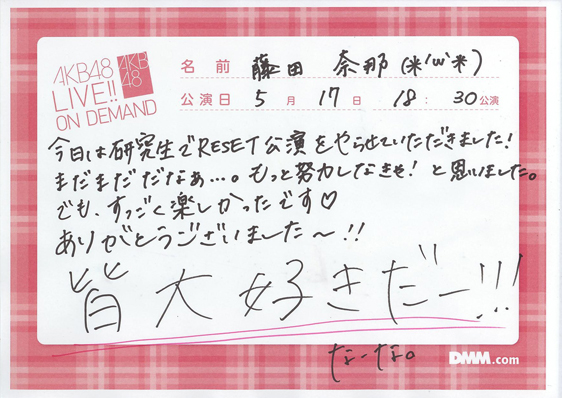 AKB48
LIVE!!
ON DEMAND
AKB
48
名前 藤田 奈那(*'ω'*)
公演日 5月17日 18:30公演
今日は研究生でRESET公演をやらせていただきました!
まだまだだなぁ…。もっと努力しなきゃ!と思いました。
でも、すっごく楽しかったです♡
ありがとうございました〜!!
皆大好きだー!!!
なーな。
DMM.com